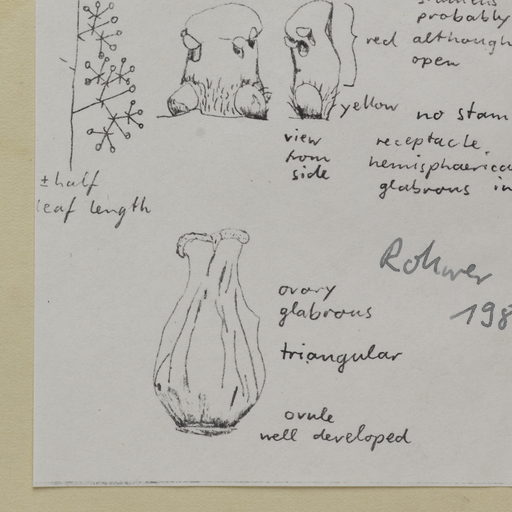 probably
red although
open
yellow no stam
view
from
side
receptacle
hemisphaerica
glabrous in
±half
leaf length
Rohwer
198
ovary
glabrous
triangular
ovule
well developed